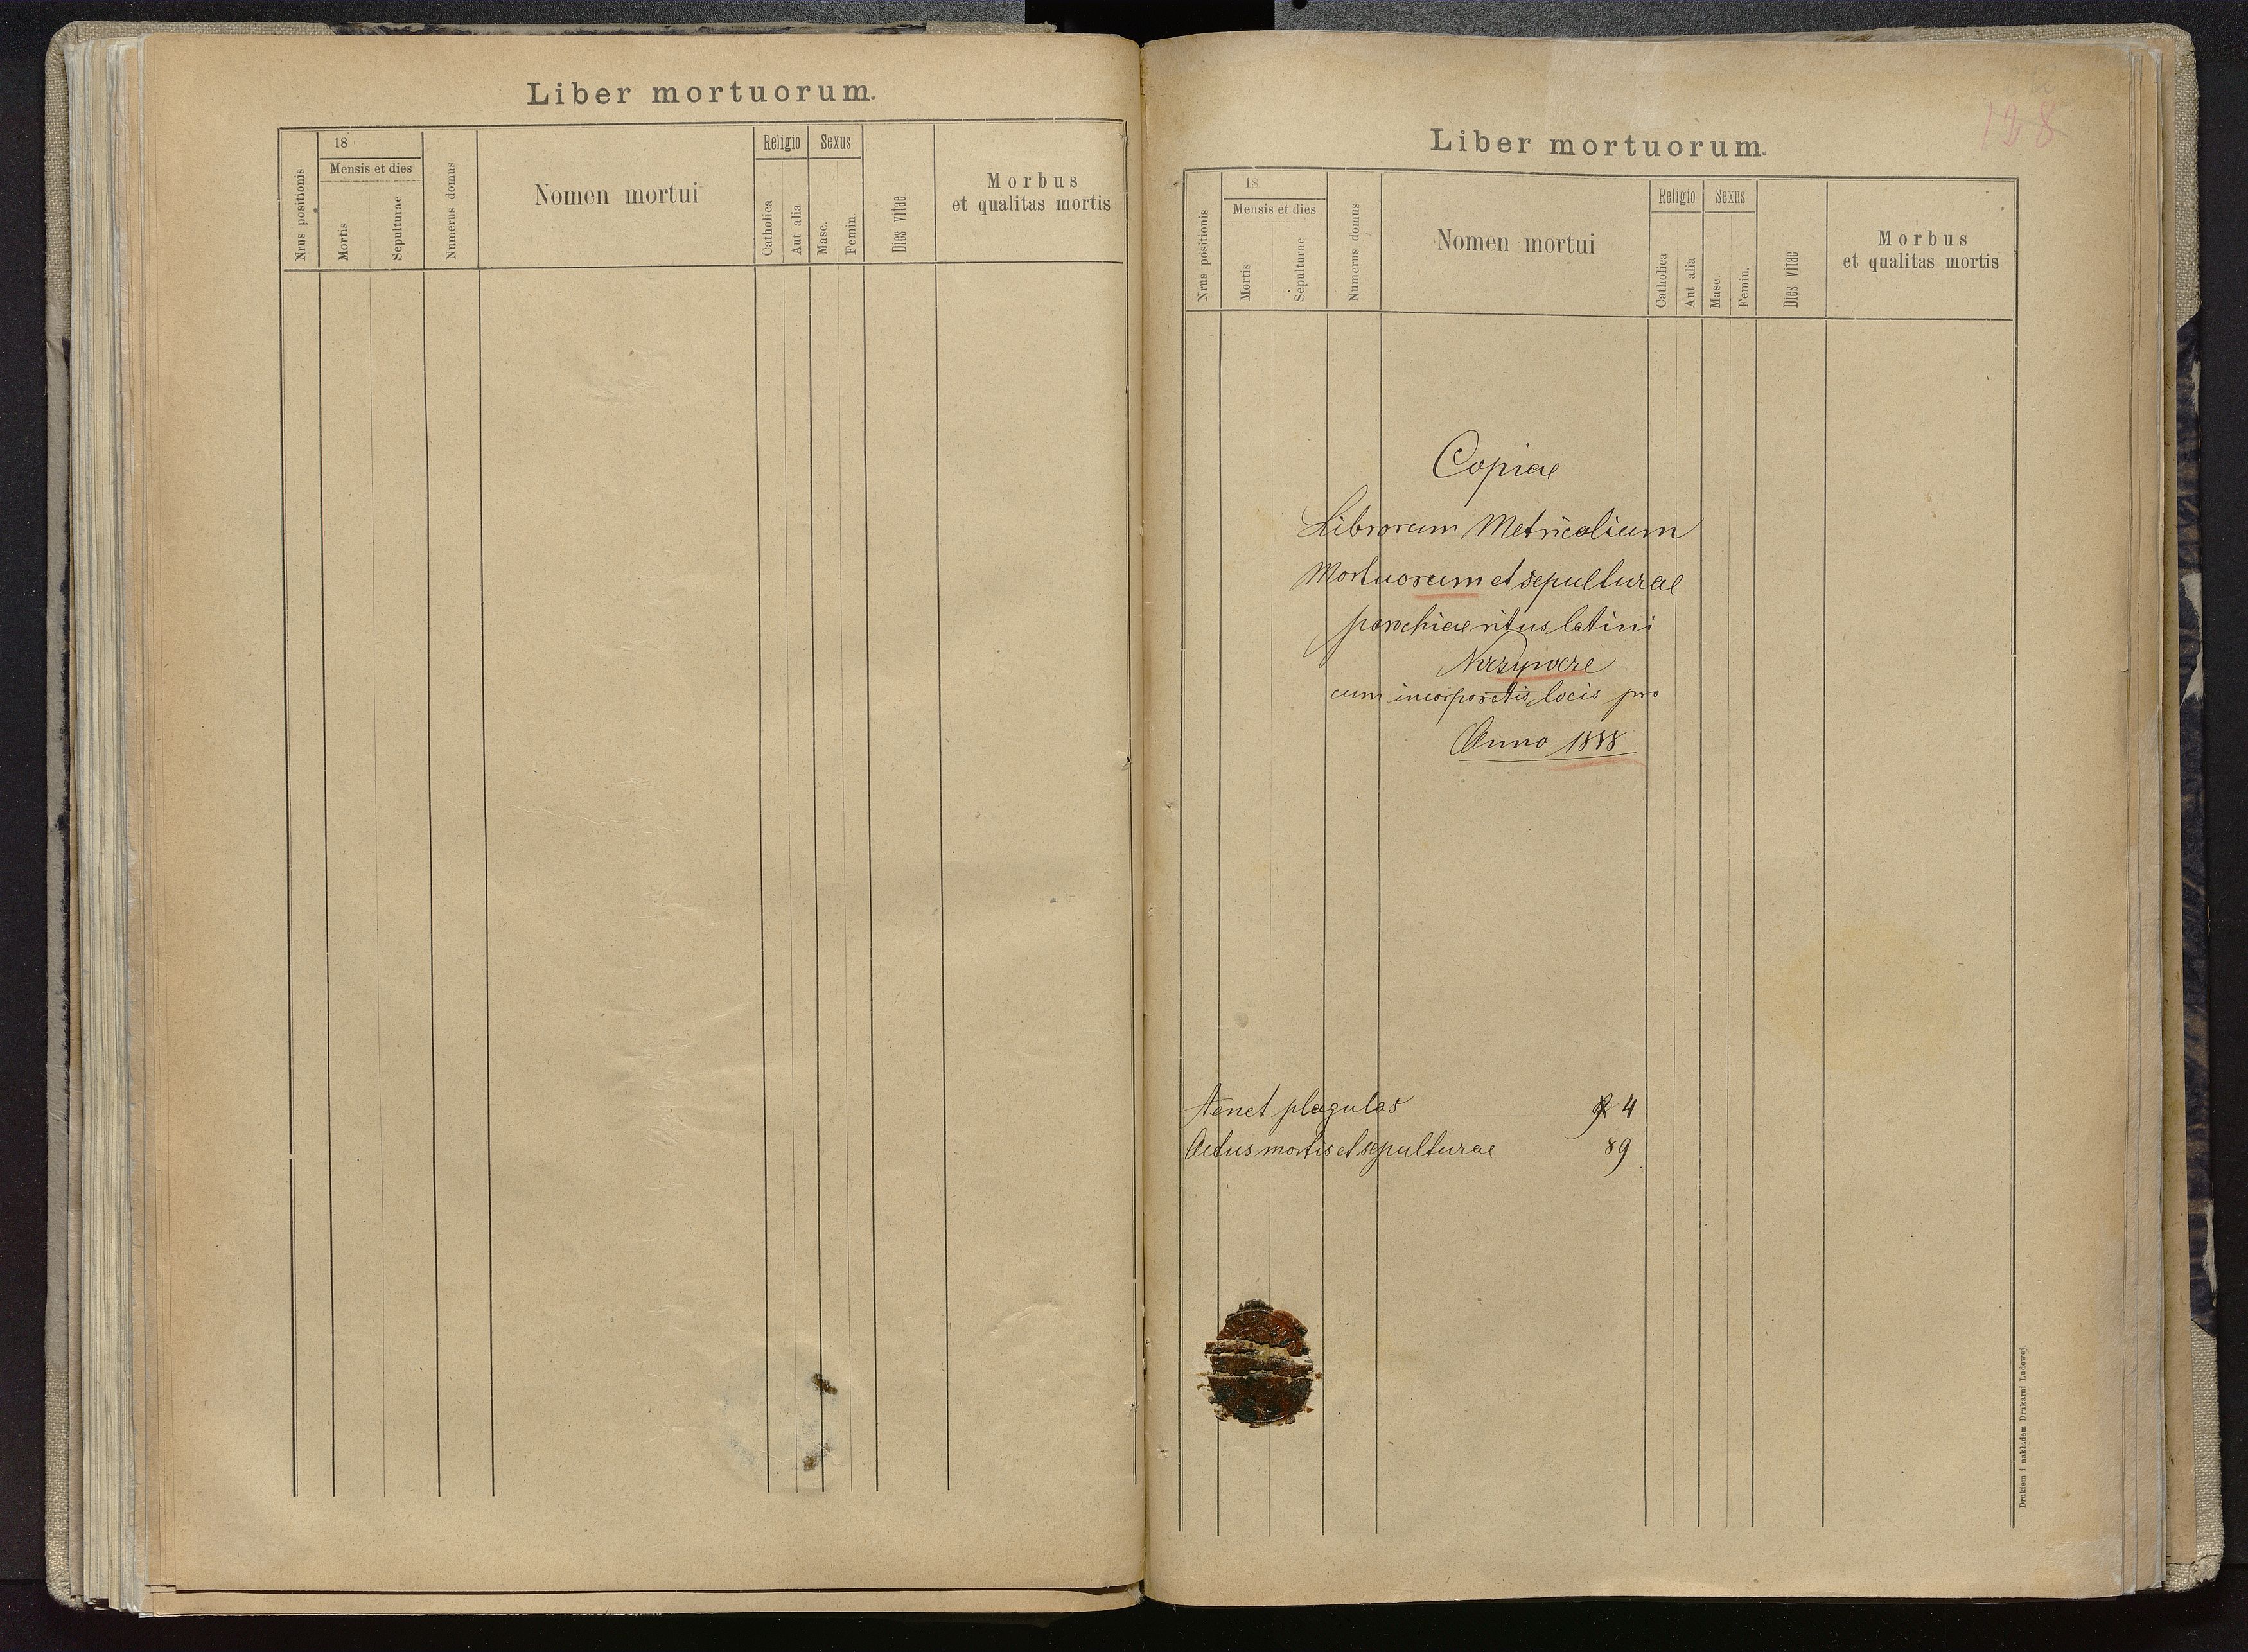 Liber mortuorum.
Nrus positionis
18
Mensis et dies
Mortis
Sepulturae
Numerus domus
Nomen mortui
Religio
Catholica
Aut alia
Sexus
Masc.
Femin
Dies vitae
Morbus
et qualitas mortis
128
Liber mortuorum.
Nrus positionis
18
Mensis et dies
Mortis
Sepulturae
Numerus domus
Nomen mortui
Religio
Catholica
Aut alia
Sexus
Masc
Femin.
Dies vitae
Morbus
et qualitas mortis
Copiae
Librorum Metricalium
Mortuorum et sepulturae
parochiae ritus latini
cum incorporatis locis pro
Anno 1888
tenet plagulas 4
Actus mortis et sepulturae 89
Drukiem i nakładem Drukarni Ludowej.